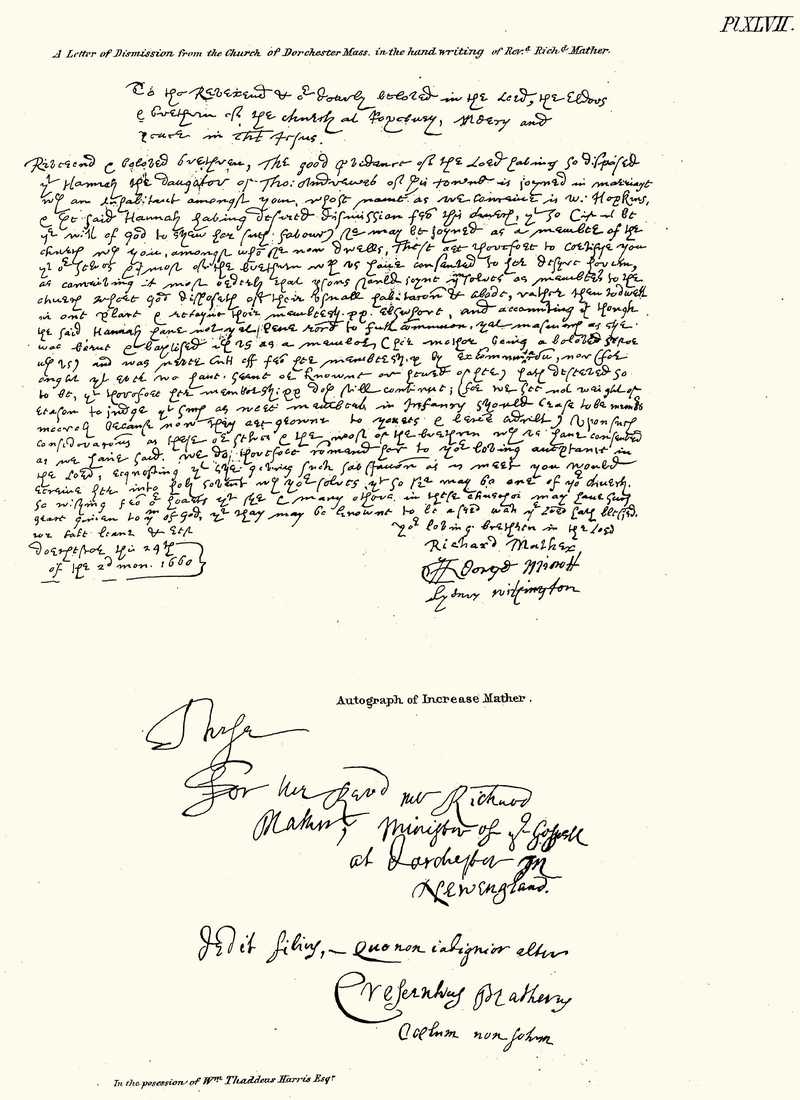 Pl XLVII.
A Letter of Dismission from the Church of Dorchester Mass. in the hand writing of Rev.d Rich.d Mather.
To the Reverend & or dearly beloved in the Lord, the Elders
& brethren of the church at Roxbury, Mercy and
peace in Jesus.
Reverend & beloved brethren, The good pvidence of the Lord having so disposed
yt Hannah the daughter of Tho: Andrewes of this towne is joyned in marriage
wth an inhabitant amongst you, whose name as we conceive is W: Hopkins,
& the said Hannah having desired dismission fro this church, yt so if it be
ye will of god to shew her such favour) she may be joyned as a member of the
church wth you, amongst who she now dwells, These are therefore to certifye you
yt or selves & most of the brethren wth us have consented to her desyre herein,
as conceiving it most orderly that psons should joyne ymselves as members to the
church where god disposeth of their usuall habitacon & abode, rather then to dwell
in one place & retayne their membershipp elsewhere, and accounting yt though
the said Hannah have not yet bene recd to full communion, yet inasmuch as she
was borne & baptised wth us as a member, (her mother being a beloved sister
wth us) and was never cutt off fro her membership by excommunication, nor (for
ought yt ever we have seene or knowne or heard of her) hath deserved so
to be, yt therefore her membershipp doth still continue; (for we see not weight of
reason to judge yt such as were members in Infancy should cease to be members
meerely because now they are growne to yeeres & bene adult) Upon such
consideracons as these or selves & the most of the brethren wth us have consented
as we have said. we do therefore comend her to yor loving acceptance in
the Lord, requesting yt she giving such satisfaccon as is meet you would
receive her into holy covent wth yor selves yt so she may be one of yor church.
So wishing fro or hearts yt she & many others in these churches may have such
grace given to ym of god, yt they may be knowne to be a seed wch ye Lord hath blessed.
we take leave & rest
yor loving brethren in the Lord
Dorchester this 29th
of the 2d mon. 1660
Richard Mather
George Minott
Autograph of Increase Mather.
These
For the Revd mr Richard
Mather, Minister of ye Gospell
at Dorchester In
New England.
Dedit filius, — quo non indignior alter
Crescentius Matherus
Coelum non solum
In the possession of Wm. Thaddeus Harris Esqr